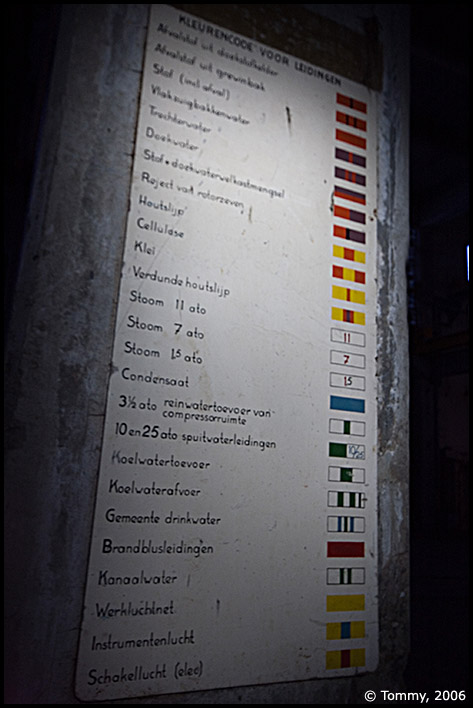 KLEURENCODE VOOR LEIDINGEN
Afvalstof uit doekstofkelder
Afvalstof uit grewinbak
Stof (incl. afval)
Vlakzuigbakkenwater
Trechterwater
Doekwater
Stof + doekwaterwelkastmengsel
Reject van rotorzeven
Houtslijp
Cellulose
Klei
Verdunde houtslijp
Stoom 11 ato
11
Stoom 7 ato
7
Stoom 1,5 ato
1,5
Condensaat
3½ ato reinwatertoevoer van
compressorruimte
10 en 25 ato spuitwaterleidingen
10/25
Koelwatertoevoer
Koelwaterafvoer
Gemeente drinkwater
Brandblusleidingen
Kanaalwater
Werkluchtnet
Instrumentenlucht
Schakellucht (elec)
© Tommy, 2006